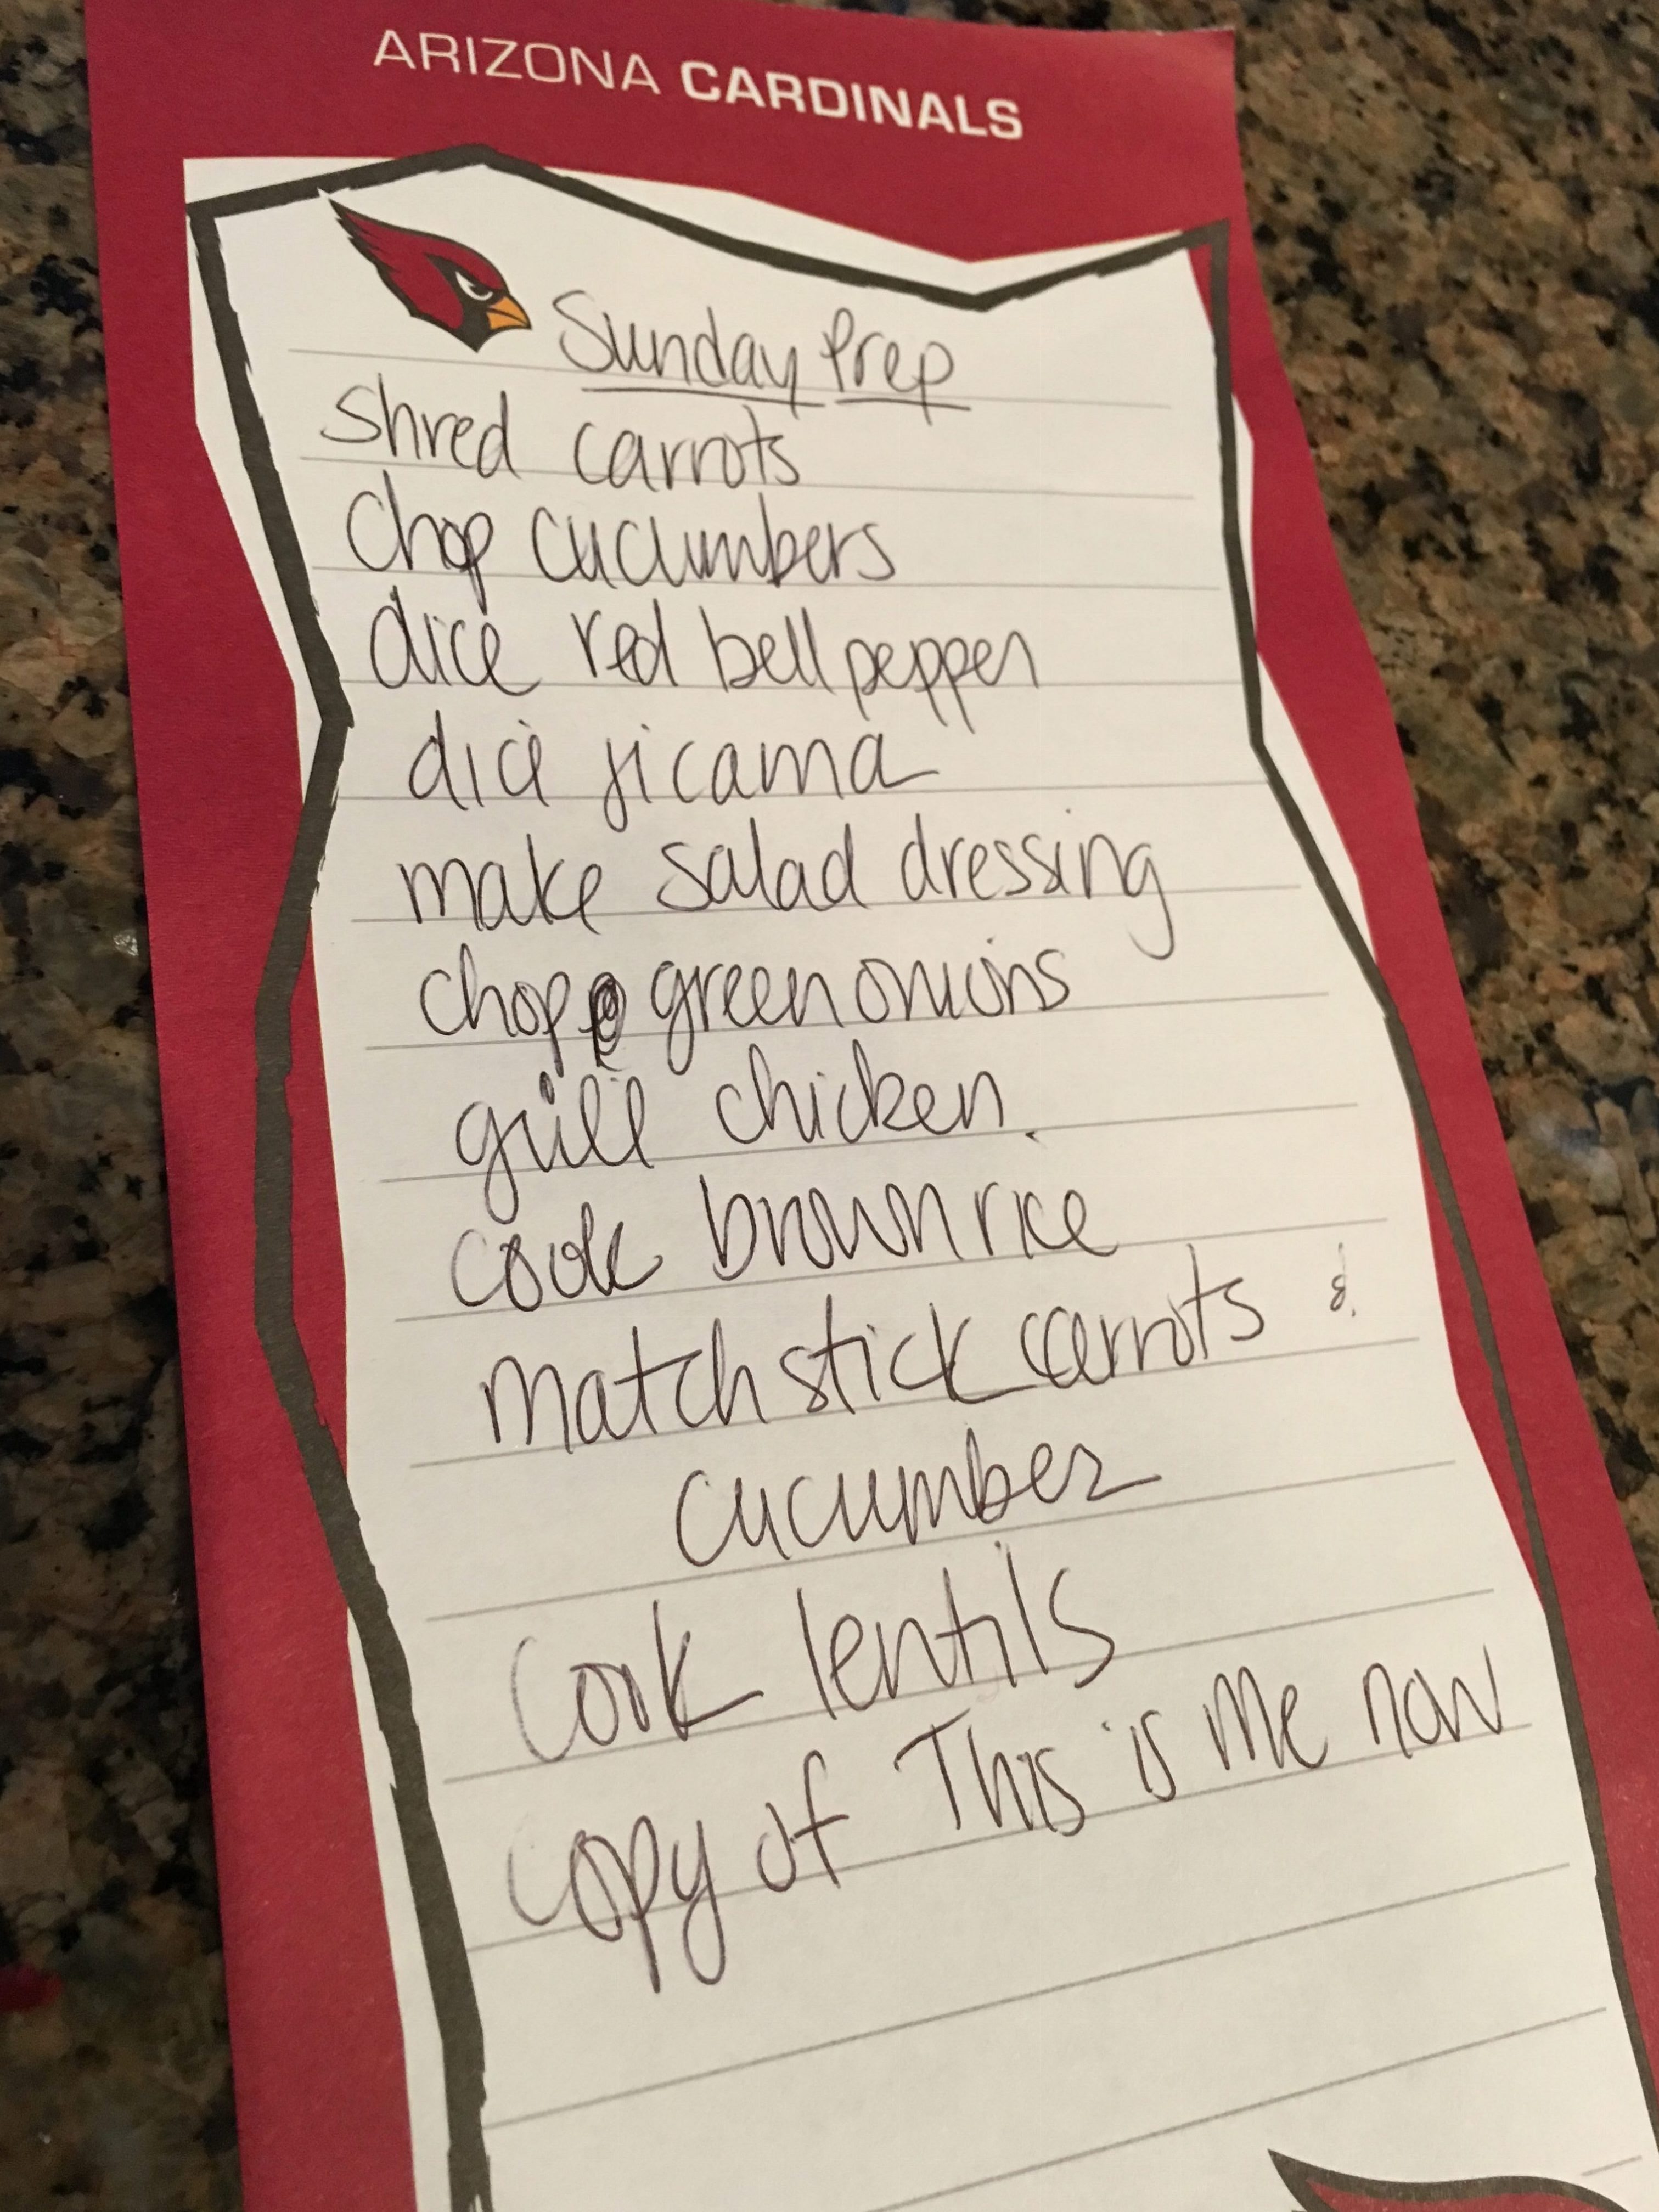 ARIZONA CARDINALS
Sunday Prep
Shred carrots
Chop cucumbers
dice red bell pepper
dice jicama
make salad dressing
chop green onions
grill chicken.
cook brown rice
Matchstick carrots &
cucumber
Cook lentils
copy of This is Me now